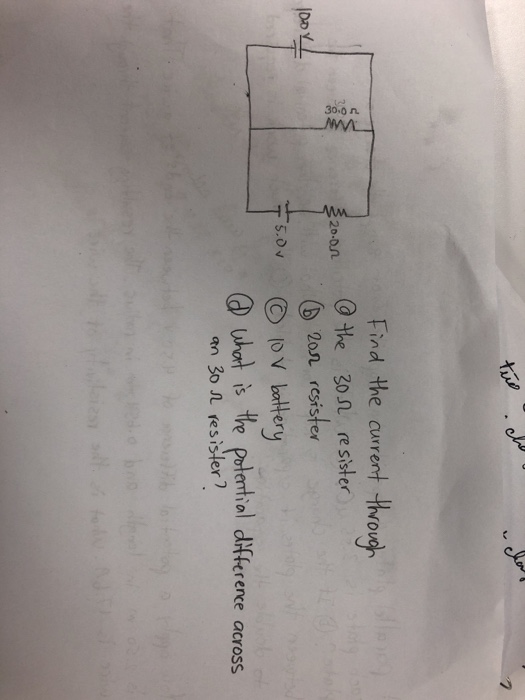 10.0V
30.0 Ω
20.0Ω
5.0V
Find the current through
ⓐ the 30Ω resister
ⓑ 20Ω resister
ⓒ 10V battery
ⓓ What is the potential difference across
an 30Ω resister?